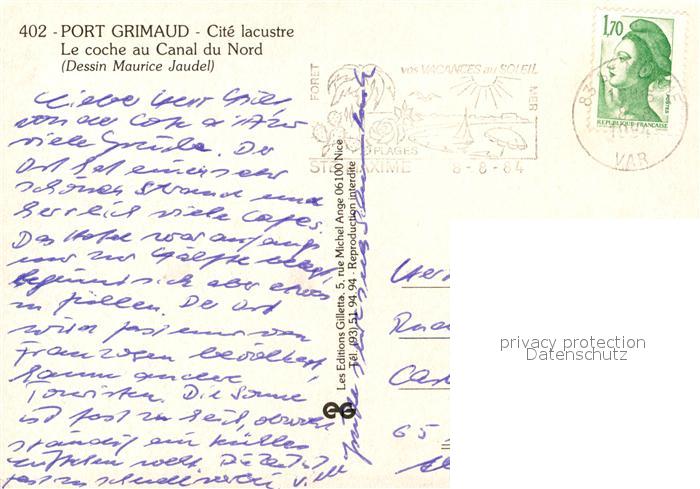 402 - PORT GRIMAUD - Cité lacustre
Le coche au Canal du Nord
(Dessin Maurice Jaudel)
1,70
REPUBLIQUE FRANÇAISE
83
VAR
FORET
vos VACANCES au SOLEIL
MER
PLAGES
STE MAXIME
8-8-84
Lieber Herr
von der Cote d'Azur
viele Grüße. Der
Ort hat einen sehr
schönen Strand und
herrlich viele Cafes.
Das Hotel war anfangs
nur zur Hälfte belegt,
beginnt sich aber etwas
zu füllen. Der Ort
wird fast nur von
Franzosen bevölkert,
kaum andere
Touristen. Die Sonne
ist fast zu heiß, obwohl
ständig ein kühles
Lüftchen weht. Die Zeit
Les Editions Gilletta, 5, rue Michel Ange 06100 Nice
Tél. (93) 51 94 94 - Reproduction interdite
eg
65
privacy protection
Datenschutz